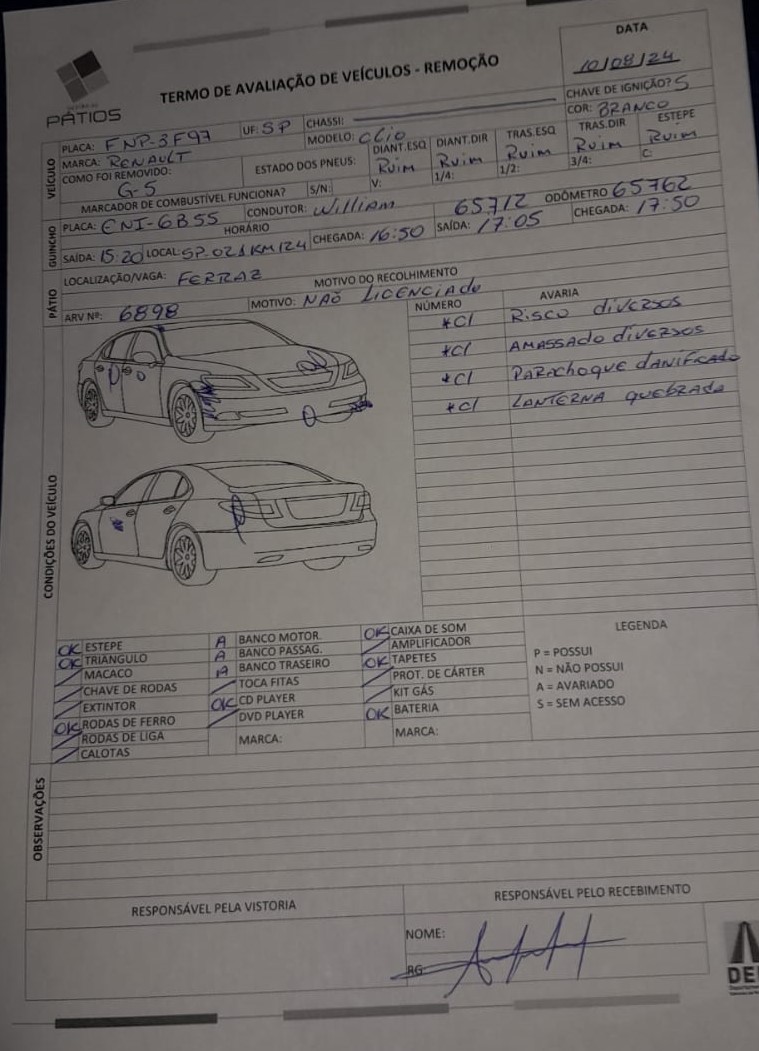 DATA
TERMO DE AVALIAÇÃO DE VEÍCULOS - REMOÇÃO
10/08/24
PÁTIOS
CHAVE DE IGNIÇÃO? S
PLACA: FNP-3F97 UF: SP CHASSI: COR: BRANCO
MARCA: RENAULT MODELO: Clio
VEÍCULO
COMO FOI REMOVIDO: G-5
ESTADO DOS PNEUS: DIANT.ESQ DIANT.DIR TRAS.ESQ TRAS.DIR ESTEPE
Ruim Ruim Ruim Ruim Ruim
MARCADOR DE COMBUSTÍVEL FUNCIONA? S/N: V: 1/4: 1/2: 3/4: C:
GUINCHO
PLACA: ENJ-6B55 CONDUTOR: William 65712 ODÔMETRO 65762
HORÁRIO
SAÍDA: 15:20 LOCAL: SP-021 KM 124 CHEGADA: 16:50 SAÍDA: 17:05 CHEGADA: 17:50
PÁTIO
LOCALIZAÇÃO/VAGA: FERRAZ MOTIVO DO RECOLHIMENTO
ARV Nº: 6898 MOTIVO: NAO LICENCIADO
CONDIÇÕES DO VEÍCULO
NÚMERO AVARIA
*C/ RISCO diVERSOS
*C/ AMASSADO diVERSOS
*C/ PARACHOQUE danificado
*C/ LANTERNA QUEBRADA
OK ESTEPE
OK TRIANGULO
MACACO
CHAVE DE RODAS
EXTINTOR
OK RODAS DE FERRO
RODAS DE LIGA
CALOTAS
A BANCO MOTOR.
A BANCO PASSAG.
A BANCO TRASEIRO
TOCA FITAS
OK CD PLAYER
DVD PLAYER
MARCA:
OK CAIXA DE SOM
AMPLIFICADOR
OK TAPETES
PROT. DE CÁRTER
KIT GÁS
OK BATERIA
MARCA:
LEGENDA
P = POSSUI
N = NÃO POSSUI
A = AVARIADO
S = SEM ACESSO
OBSERVAÇÕES
RESPONSÁVEL PELA VISTORIA
RESPONSÁVEL PELO RECEBIMENTO
NOME:
RG: